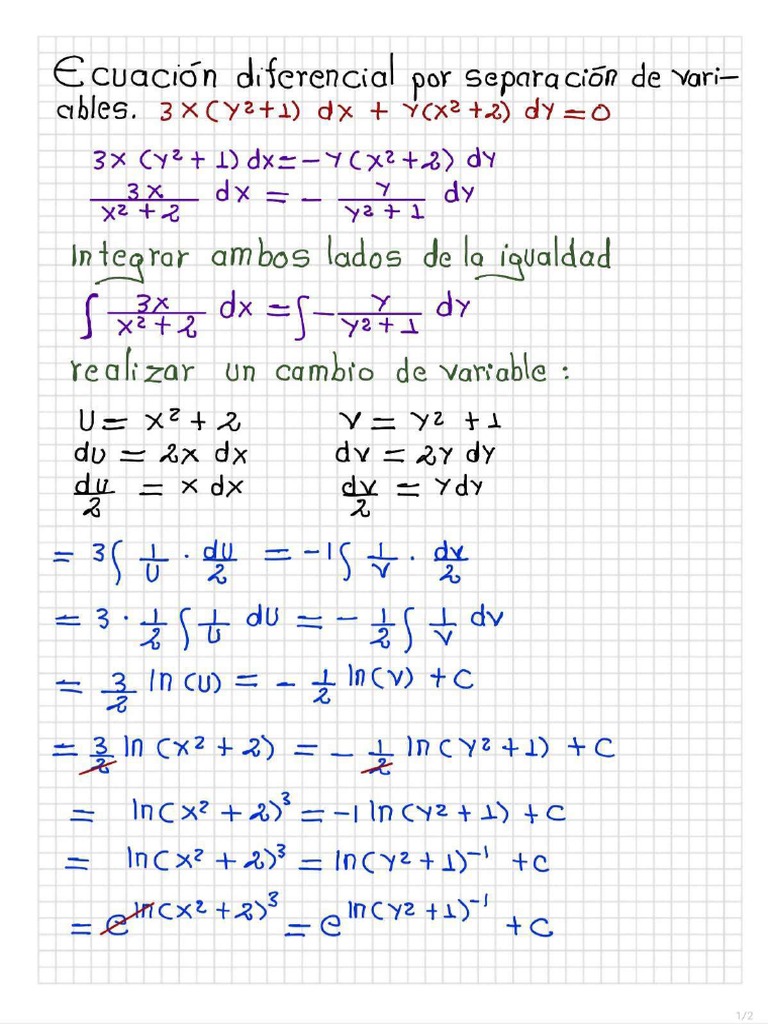 Ecuación diferencial por separación de vari-
ables. 3x(y²+1) dx + y(x²+2) dy = 0
3x (y² + 1) dx = -y (x² + 2) dy
3x/(x² + 2) dx = - y/(y² + 1) dy
Integrar ambos lados de la igualdad
∫ 3x/(x² + 2) dx = ∫ - y/(y² + 1) dy
realizar un cambio de variable :
U = x² + 2 v = y² + 1
du = 2x dx dv = 2y dy
du/2 = x dx dv/2 = y dy
= 3∫ 1/U · dU/2 = -1∫ 1/v · dv/2
= 3 · 1/2 ∫ 1/U dU = - 1/2 ∫ 1/v dv
= 3/2 ln(U) = - 1/2 ln(v) + C
= 3/2 ln (x² + 2) = - 1/2 ln(y² + 1) + C
= ln(x² + 2)³ = -1 ln(y² + 1) + C
= ln(x² + 2)³ = ln(y² + 1)⁻¹ + C
= e^ln(x² + 2)³ = e^ln(y² + 1)⁻¹ + C
1/2